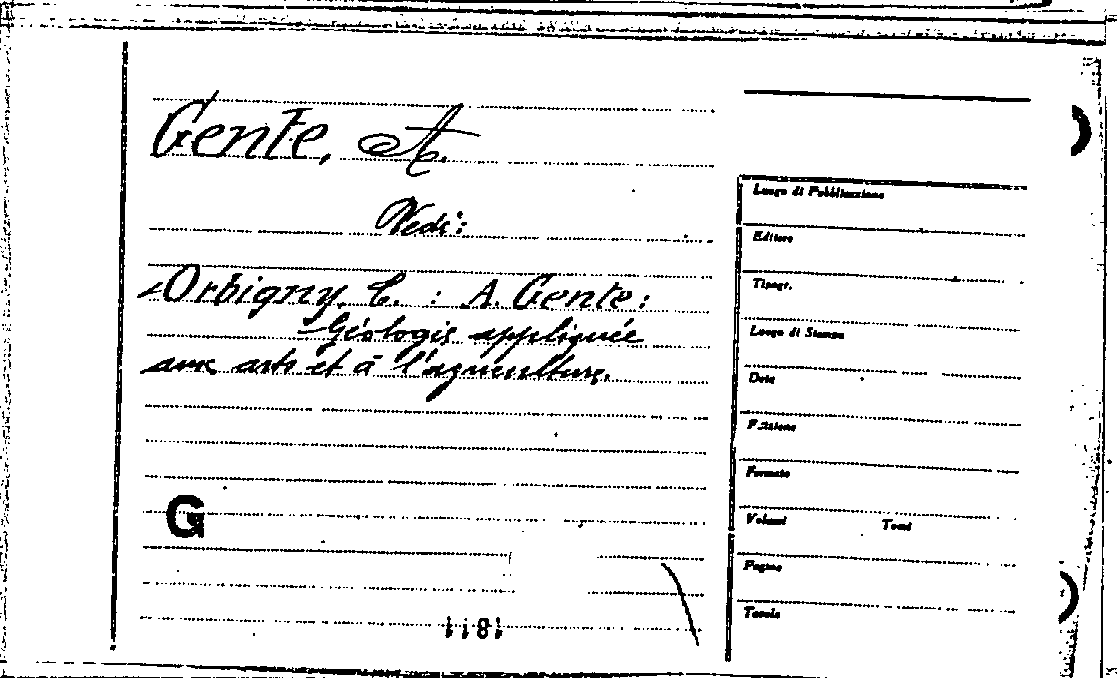 Gente, A.
Vedi:
Orbigny, C. : A. Gente:
Géologie appliquée
aux arts et à l'agriculture.
G
Luogo di Pubblicazione
Editore
Tipogr.
Luogo di Stampa
Data
Edizione
Formato
Volumi Tomi
Pagine
Tavole